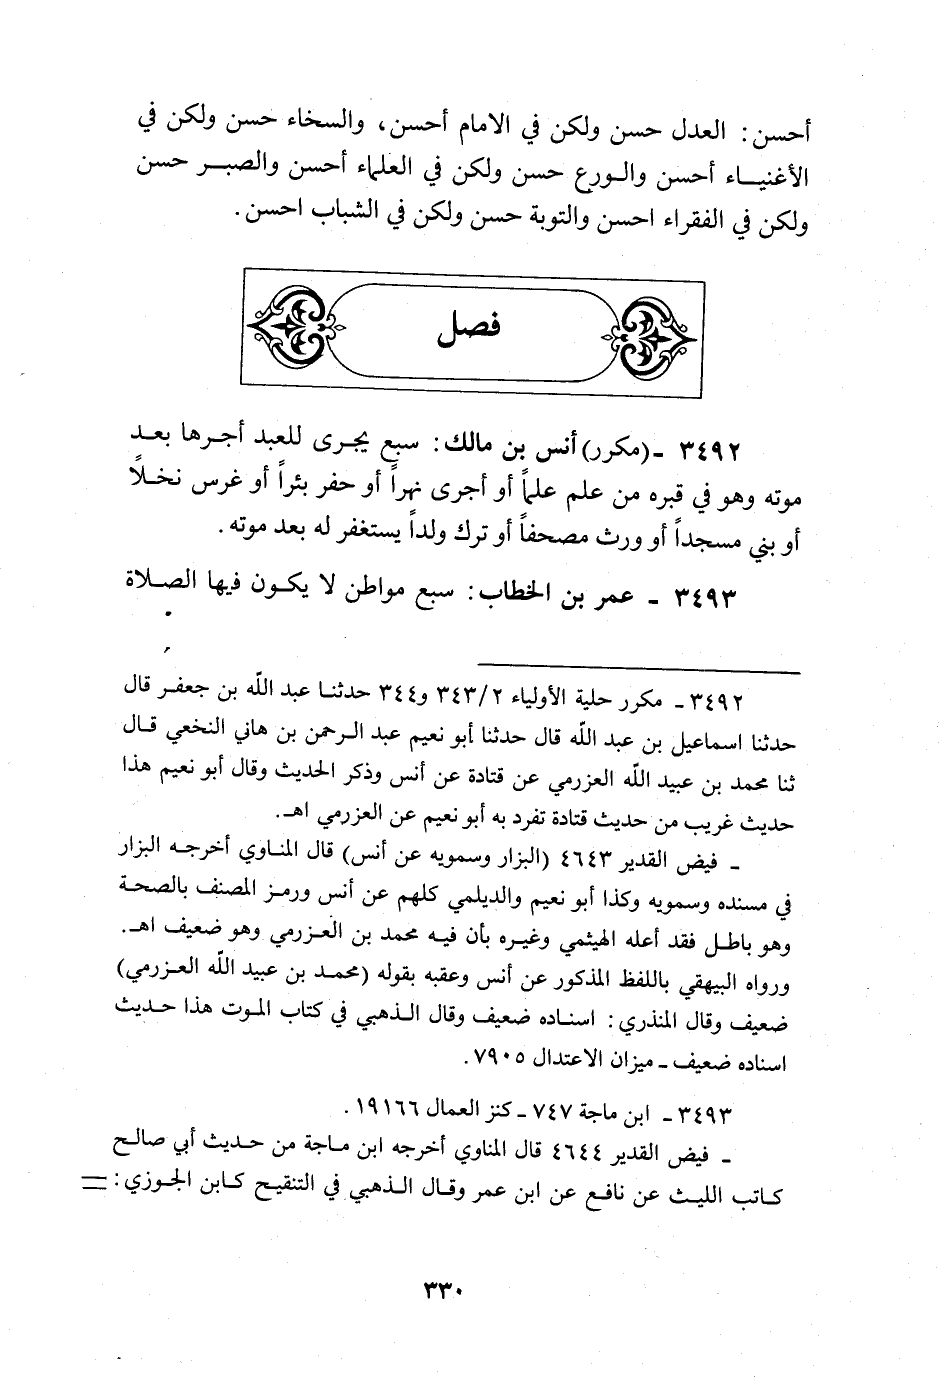 أحسن: العدل حسن ولكن في الامام أحسن، والسخاء حسن ولكن في
الأغنيـاء أحسن والـورع حسن ولكن في العلماء أحسن والصبـر حسن
ولكن في الفقراء احسن والتوبة حسن ولكن في الشباب احسن.
فصل
٣٤٩٢ ـ (مكرر) أنس بن مالك: سبع يجـرى للعبد أجـرها بعـد
موته وهو في قبره من علم علماً أو أجرى نهراً أو حفر بئراً أو غرس نخـلاً
أو بني مسجداً أو ورث مصحفاً أو ترك ولداً يستغفر له بعد موته.
٣٤٩٣ ـ عمر بن الخطاب: سبع مواطن لا يكـون فيها الصـلاة
٣٤٩٢ـ مكرر حلية الأولياء ٣٤٣/٢ و٣٤٤ حدثنـا عبد اللّه بن جعفـر قال
حدثنا اسماعيل بن عبد اللّه قال حدثنا أبو نعيم عبد الـرحمن بن هاني النخعي قـال
ثنا محمد بن عبيد اللّه العزرمي عن قتادة عن أنس وذكر الحديث وقال أبو نعيم هذا
حديث غريب من حديث قتادة تفرد به أبو نعيم عن العزرمي اهـ.
ـ فيض القدير ٤٦٤٣ (البزار وسمويه عن أنس) قال المنـاوي أخرجـه البزار
في مسنده وسمويه وكذا أبو نعيم والديلمي كلهم عن أنس ورمـز المصنف بالصحـة
وهو باطـل فقد أعله الهيثمي وغيـره بأن فيـه محمد بن العـزرمي وهو ضعيف اهـ.
ورواه البيهقي باللفظ المذكور عن أنس وعقبه بقوله (محمـد بن عبيد اللّه العـزرمي)
ضعيف وقال المنذري: اسنـاده ضعيف وقال الـذهبي في كتاب المـوت هذا حـديث
اسناده ضعيف ـ ميزان الاعتدال ٧٩٠٥.
٣٤٩٣ـ ابن ماجة ٧٤٧ ـ كنز العمال ١٩١٦٦.
ـ فيض القدير ٤٦٤٤ قال المناوي أخرجه ابن مـاجة من حـديث أبي صالـح
كـاتب الليـث عن نافـع عن ابن عمر وقال الـذهبي في التنقيح كـابن الجوزي: =
٣٣٠